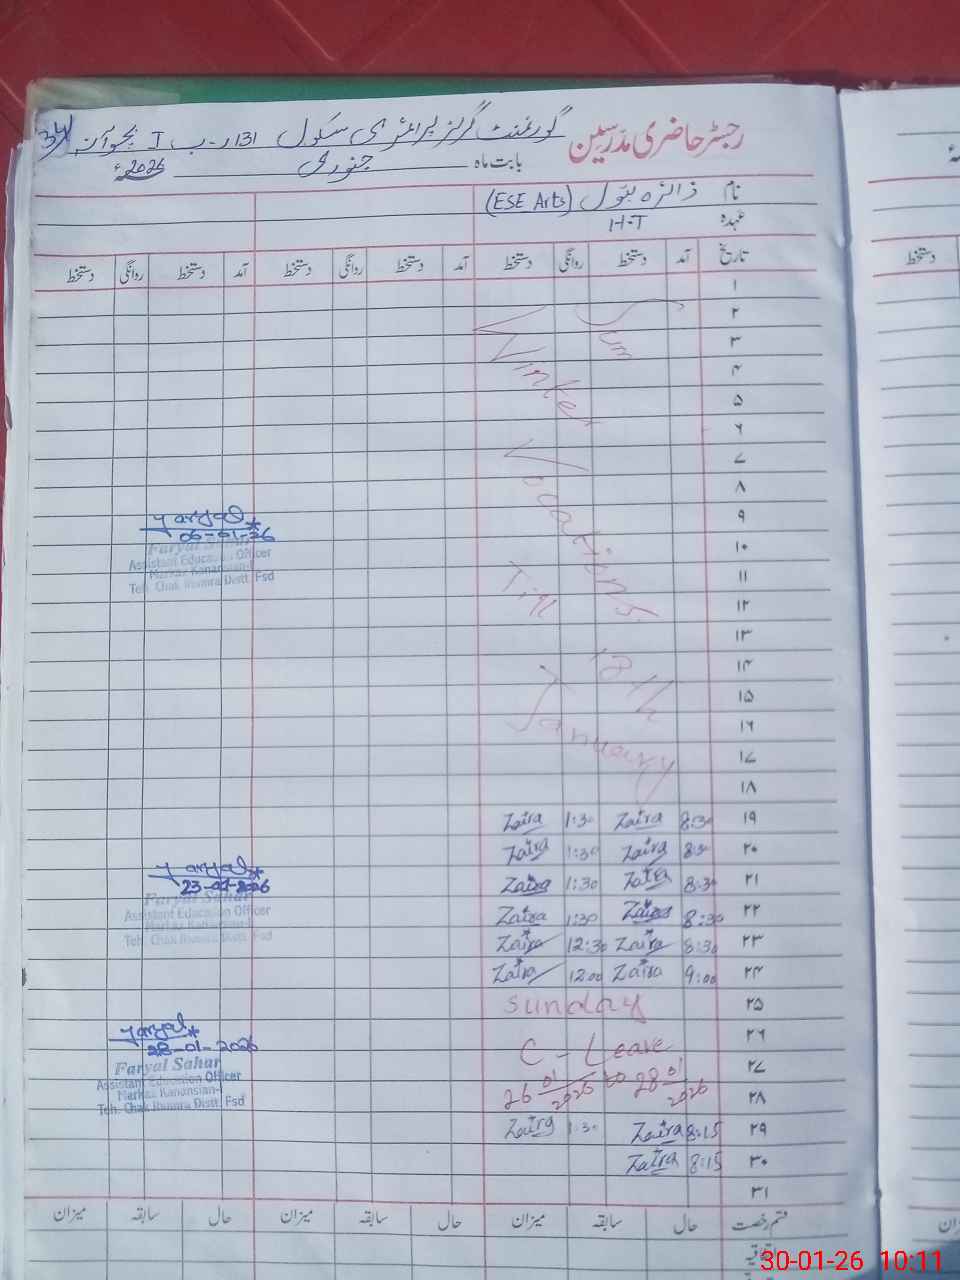 رجسٹر حاضری مدرسین گورنمنٹ گرلز پرائمری سکول 131 ر-ب I
34
بابت ماہ جنوری 2026ء
نام زائرہ بتول (ESE Arts)
عہدہ H-T
تاریخ آمد دستخط روانگی دستخط آمد دستخط روانگی دستخط آمد دستخط روانگی دستخط
دستخط
۱
۲
۳
۴
۵
۶
۷
۸
۹
۱۰
۱۱
۱۲
۱۳
۱۴
۱۵
۱۶
۱۷
۱۸
Winter
Vocations
Till
January
Faryal
06-01-26
Faryal Sahar
Assistant Education Officer
Markaz Kanansian-I
Teh. Chak Jhumra Distt. Fsd
۱۹ 8:30 Zaira 1:30 Zaira
۲۰ 8:30 Zaira 1:30 Zaira
۲۱ 8:30 Zaira 1:30 Zaira
۲۲ 8:30 Zaira 1:30 Zaira
۲۳ 8:30 Zaira 12:30 Zaira
۲۴ 9:00 Zaira 12:00 Zaira
Faryal
23-01-2026
Faryal Sahar
Assistant Education Officer
Markaz Kanansian-I
Teh. Chak Jhumra Distt. Fsd
۲۵ Sunday
۲۶
۲۷
۲۸
C - Leave
26 01/2026 to 28 01/2026
Faryal
28-01-2026
Faryal Sahar
Assistant Education Officer
Markaz Kanansian-I
Teh. Chak Jhumra Distt. Fsd
۲۹ 8:15 Zaira 1:30 Zaira
۳۰ 8:15 Zaira
۳۱
قسم رخصت حال سابقہ میزان حال سابقہ میزان حال سابقہ میزان
30-01-26 10:11